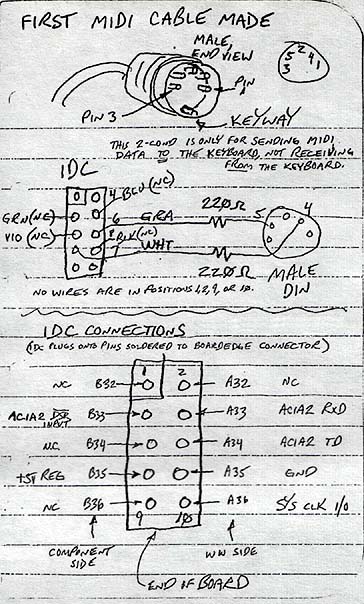 FIRST MIDI CABLE MADE
MALE, END VIEW
5 2 4 1
3
PIN
PIN 3
KEYWAY
THIS 2-COND IS ONLY FOR SENDING MIDI
DATA TO THE KEYBOARD, NOT RECEIVING
FROM THE KEYBOARD.
IDC
4 BLU (NC)
GRN (NC)
6 GRA
220Ω
5
4
VIO (NC)
8 BLK (NC)
7 WHT
220Ω
MALE
DIN
NO WIRES ARE IN POSITIONS 1, 2, 9, OR 10.
IDC CONNECTIONS
(IDC PLUGS ONTO PINS SOLDERED TO BOARDEDGE CONNECTOR)
1 2
NC B32 A32 NC
ACIA2 INPUT B33 A33 ACIA2 RXD
NC B34 A34 ACIA2 TD
+5V REG B35 A35 GND
NC B36 A36 S/S CLK I/O
9 10
COMPONENT SIDE
WW SIDE
END OF BOARD